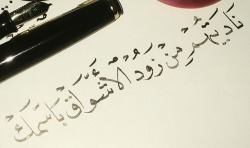 ناديتهم من زود الأشواق باسمك